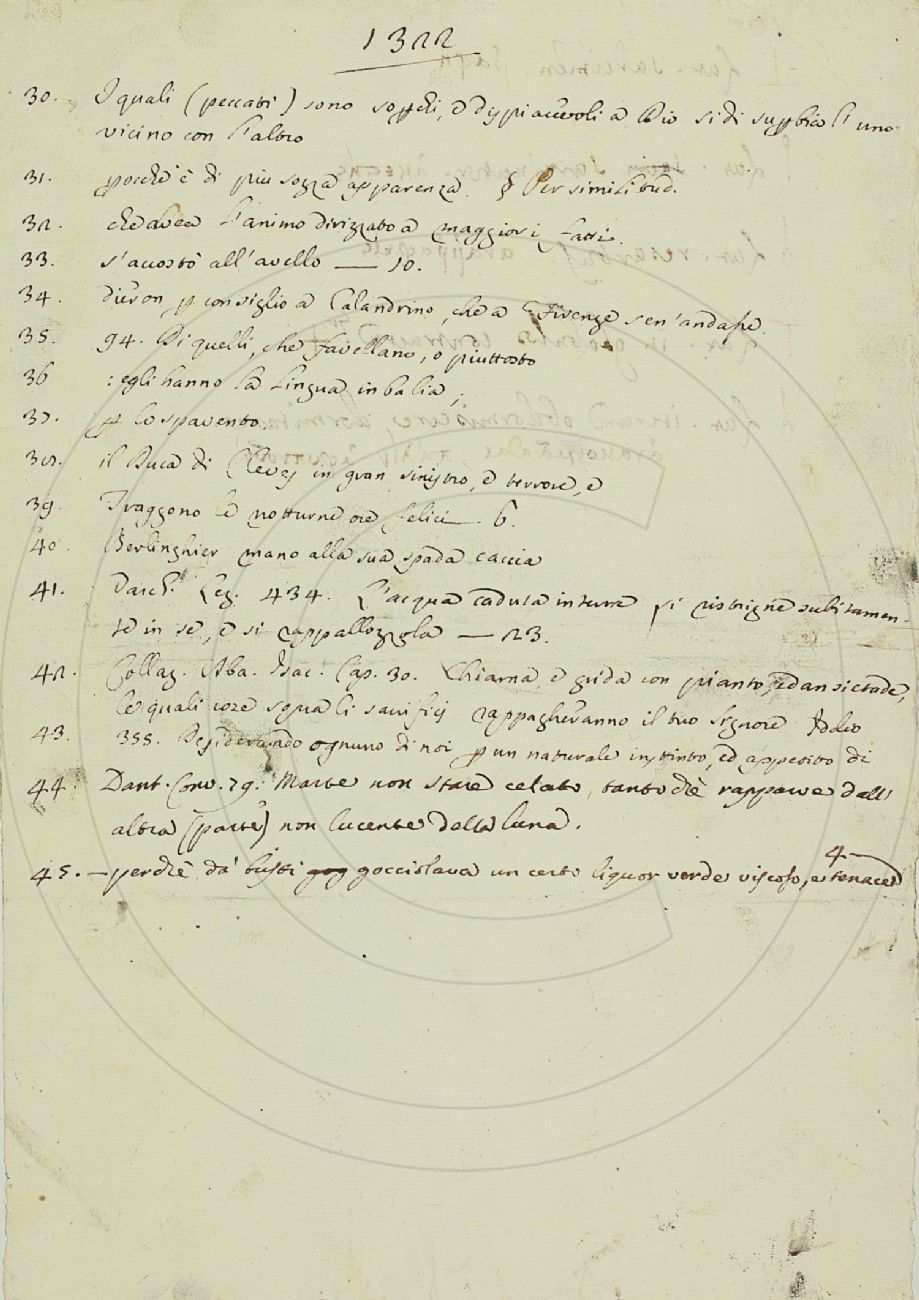 1322
30. I quali (peccati) sono sozzi, e dispiacevoli a Dio si di subbito l'uno
vicino con l'altro
31. perchè è di piu sozza apparenza. § Per similitud.
32. ch'avea l'animo dirizzato a maggiori fatti.
33. s'accostò all'avello — 10.
34. dieron p consiglio a Calandrino, che a Firenze sen'andasse.
35. 94. Di quelli, che favellano, o piuttosto
36 : egli hanno la lingua in balia;
37. p lo spavento
38. il Duca di Cleves in gran sinistro, e terrore, e
39. Traggono le notturne ore felici. 6.
40. Berlinghier mano alla sua spada caccia
41. Varch. Lez. 434. L'acqua caduta in terra si ristrigne subitamen-
te in se, e si rappallozzola — 23.
42. Collaz. Aba. Isac. Cap. 30. Chiama, e grida con pianto, ed ansietade,
le quali cose squali sacrificj rappagheranno il tuo Signore Iddio
43. 355. Desiderando ognuno di noi p un naturale instinto, ed appetito di
44. Dant. Conv. 79. Marte non stare celato, tanto che rappare dall'
altra (parte) non lucente della luna.
45. — perchè da' busti gocciolava un certo liquor verde viscoso, e tenace
4 —